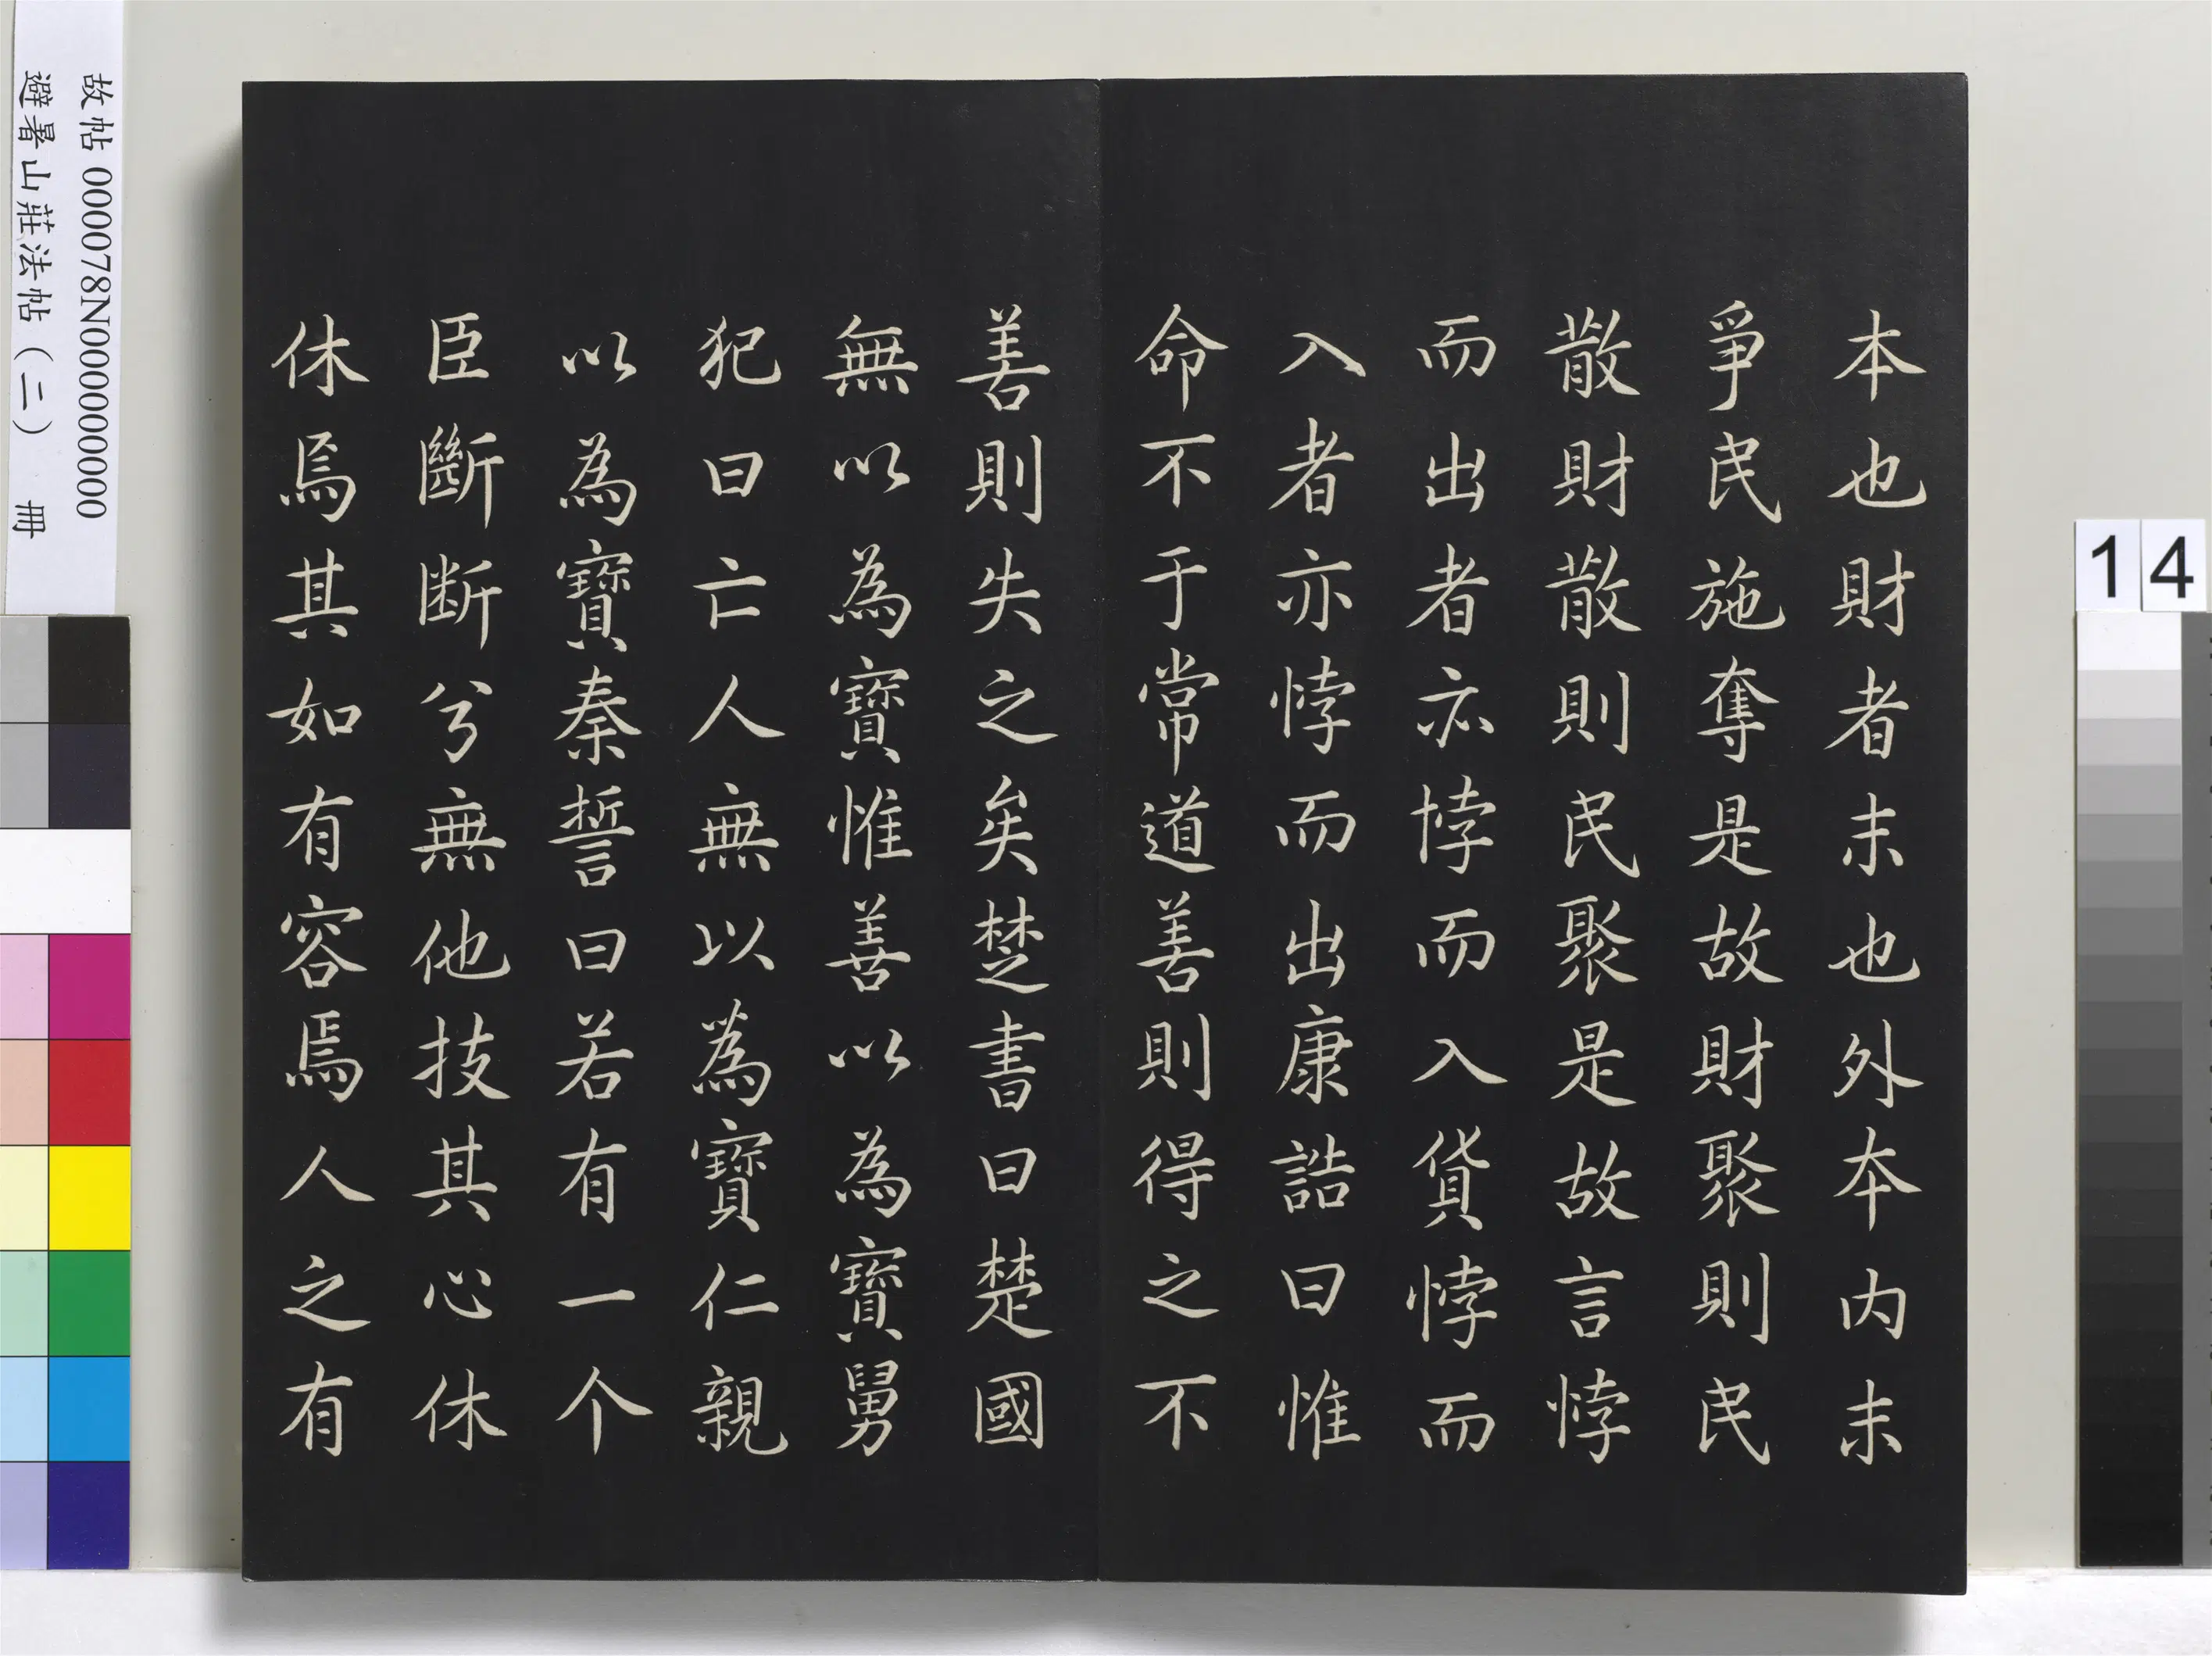 本也財者末也外本內末
爭民施奪是故財聚則民
散財散則民聚是故言悖
而出者亦悖而入貨悖而
入者亦悖而出康誥曰惟
命不于常道善則得之不
善則失之矣楚書曰楚國
無以為寶惟善以為寶舅
犯曰亡人無以為寶仁親
以為寶秦誓曰若有一个
臣斷断兮無他技其心休
休焉其如有容焉人之有
故帖 000078N000000000
避暑山莊法帖(二) 冊
14